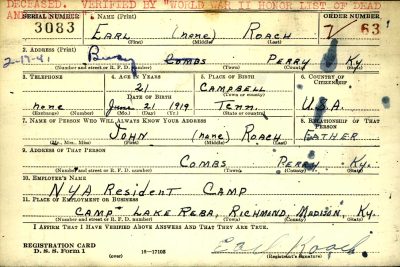 DECEASED. VERIFIED BY "WORLD WAR II HONOR LIST OF DEAD
AND
SERIAL NUMBER 1. NAME (Print) ORDER NUMBER
3083 EARL (none) ROACH 63
(First) (Middle) (Last)
2. ADDRESS (Print)
2-17-41 Busy Combs Perry Ky.
(Number and street or R. F. D. number) (Town) (County) (State)
3. TELEPHONE 4. AGE IN YEARS 5. PLACE OF BIRTH 6. COUNTRY OF CITIZENSHIP
21 CAMPBELL
DATE OF BIRTH (Town or county)
none June 21 1919 Tenn. U.S.A.
(Exchange) (Number) (Mo.) (Day) (Yr.) (State or country)
7. NAME OF PERSON WHO WILL ALWAYS KNOW YOUR ADDRESS 8. RELATIONSHIP OF THAT PERSON
JOHN (none) ROACH FATHER
(Mr., Mrs., Miss) (First) (Middle) (Last)
9. ADDRESS OF THAT PERSON
COMBS PERRY KY.
(Number and street or R. F. D. number) (Town) (County) (State)
10. EMPLOYER'S NAME
NYA Resident CAMP
11. PLACE OF EMPLOYMENT OR BUSINESS
CAMP LAKE REBA, RICHMOND, MADISON, Ky.
(Number and street or R. F. D. number) (Town) (County) (State)
I AFFIRM THAT I HAVE VERIFIED ABOVE ANSWERS AND THAT THEY ARE TRUE.
REGISTRATION CARD
D. S. S. Form 1 (over) 16-17105 Earl Roach
(Registrant's signature)